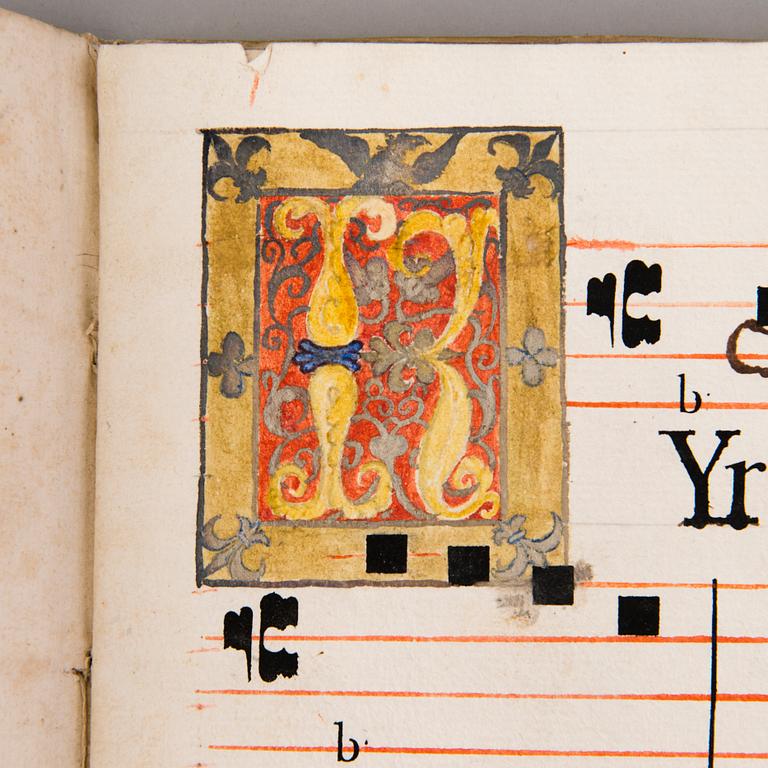 b
K Yr
b